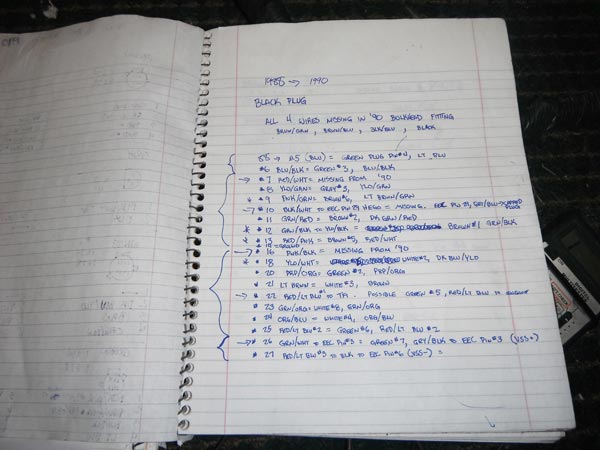 1988 → 1990
BLACK PLUG
ALL 4 WIRES MISSING IN '90 BULKHEAD FITTING
BRWN/GRN, BRWN/BLU, BLK/BLU, BLACK
88 → #5 (BLU) = GREEN PLUG PIN #4, LT BLU
#6 BLU/BLK = GREEN #3, BLU/BLK
→ * 7 RED/WHT = MISSING FROM '90
* 8 YLO/GRN = GRAY #3, YLO/GRN
* 9 PNK/GRN = BROWN #6, LT BRWN/GRN
→ * 10 BLK/WHT TO EEC PIN 29 HEGO = MISSING. EEC PIN 29, GRY/BLU →
* 11 GRN/RED = BROWN #2, DK GRN/RED
* * 12 GRN/BLK TO YLO/BLK = BROWN #1 GRN/BLK
* * 13 RED/PNK = BROWN #5, RED/WHT
→ * 16 PNK/BLK = MISSING FROM '90
* * 18 YLO/WHT = WHITE #2, DK BLU/YLO
* 20 PRP/ORG = GREEN #2, PRP/ORG
* 21 LT BRWN = WHITE #3, BROWN
→ * 22 RED/LT BLU #1 TO TPI. POSSIBLE GREEN #5, RED/LT BLU TO
* 23 GRN/ORG = WHITE #8, GRN/ORG
* 24 ORG/BLU = WHITE #4, ORG/BLU
* 25 RED/LT BLU #2 = GREEN #6, RED/LT BLU #2
→ * 26 GRN/WHT TO EEC PIN #3 = GREEN #7, GRY/BLK TO EEC PIN #3 (VSS+)
* 27 RED/LT BLU #3 TO BLK TO EEC PIN #6 (VSS-) =